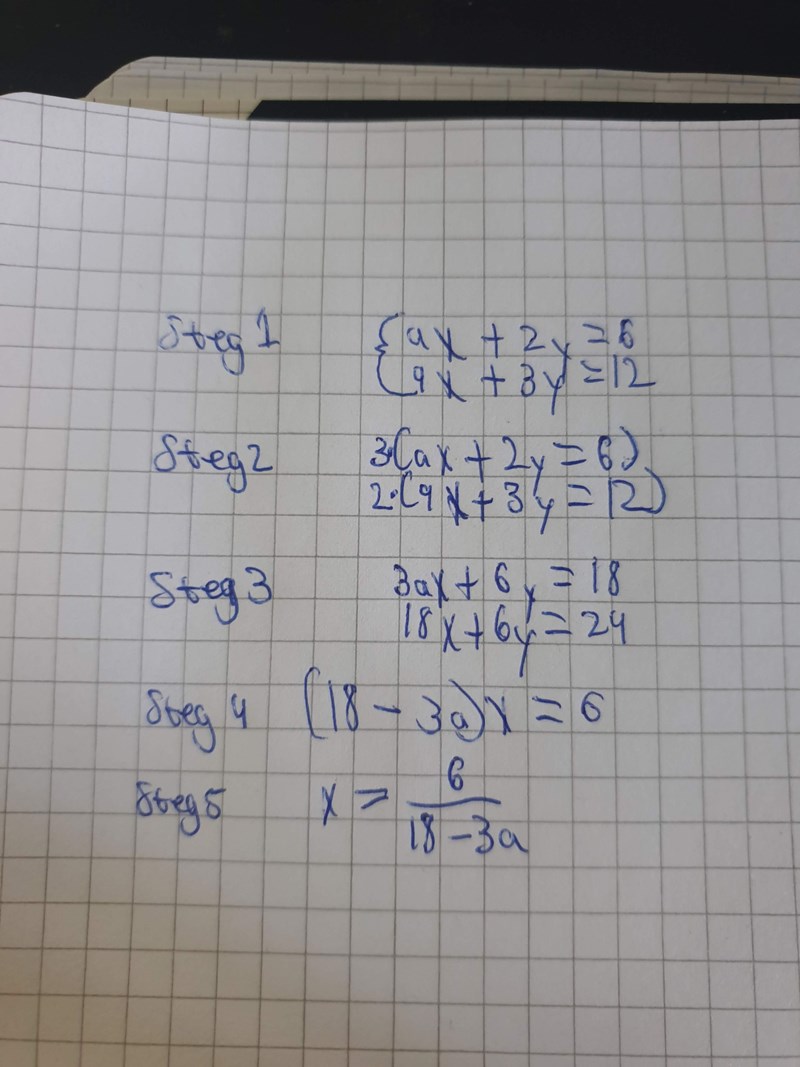 Steg 1 {ax + 2y = 6
9x + 3y = 12
Steg 2 3·(ax + 2y = 6)
2·(9x + 3y = 12)
Steg 3 3ax + 6y = 18
18x + 6y = 24
Steg 4 (18 - 3a)x = 6
Steg 5 x = 6/(18 - 3a)